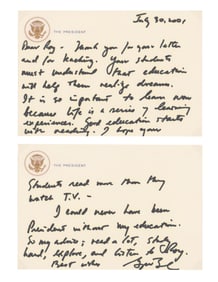 THE PRESIDENT
July 30, 2001
Dear Roy - Thank you for your letter
and for teaching. Your students
must understand that education
will help them realize dreams.
It is so important to learn
because life is a series of learning
experiences. Good education starts
with reading. I hope your
THE PRESIDENT
Students read more than they
watch T.V. -
I could never have been
President without my education.
So my advice: read a lot, study
hard, explore, and listen to Roy.
Best wishes